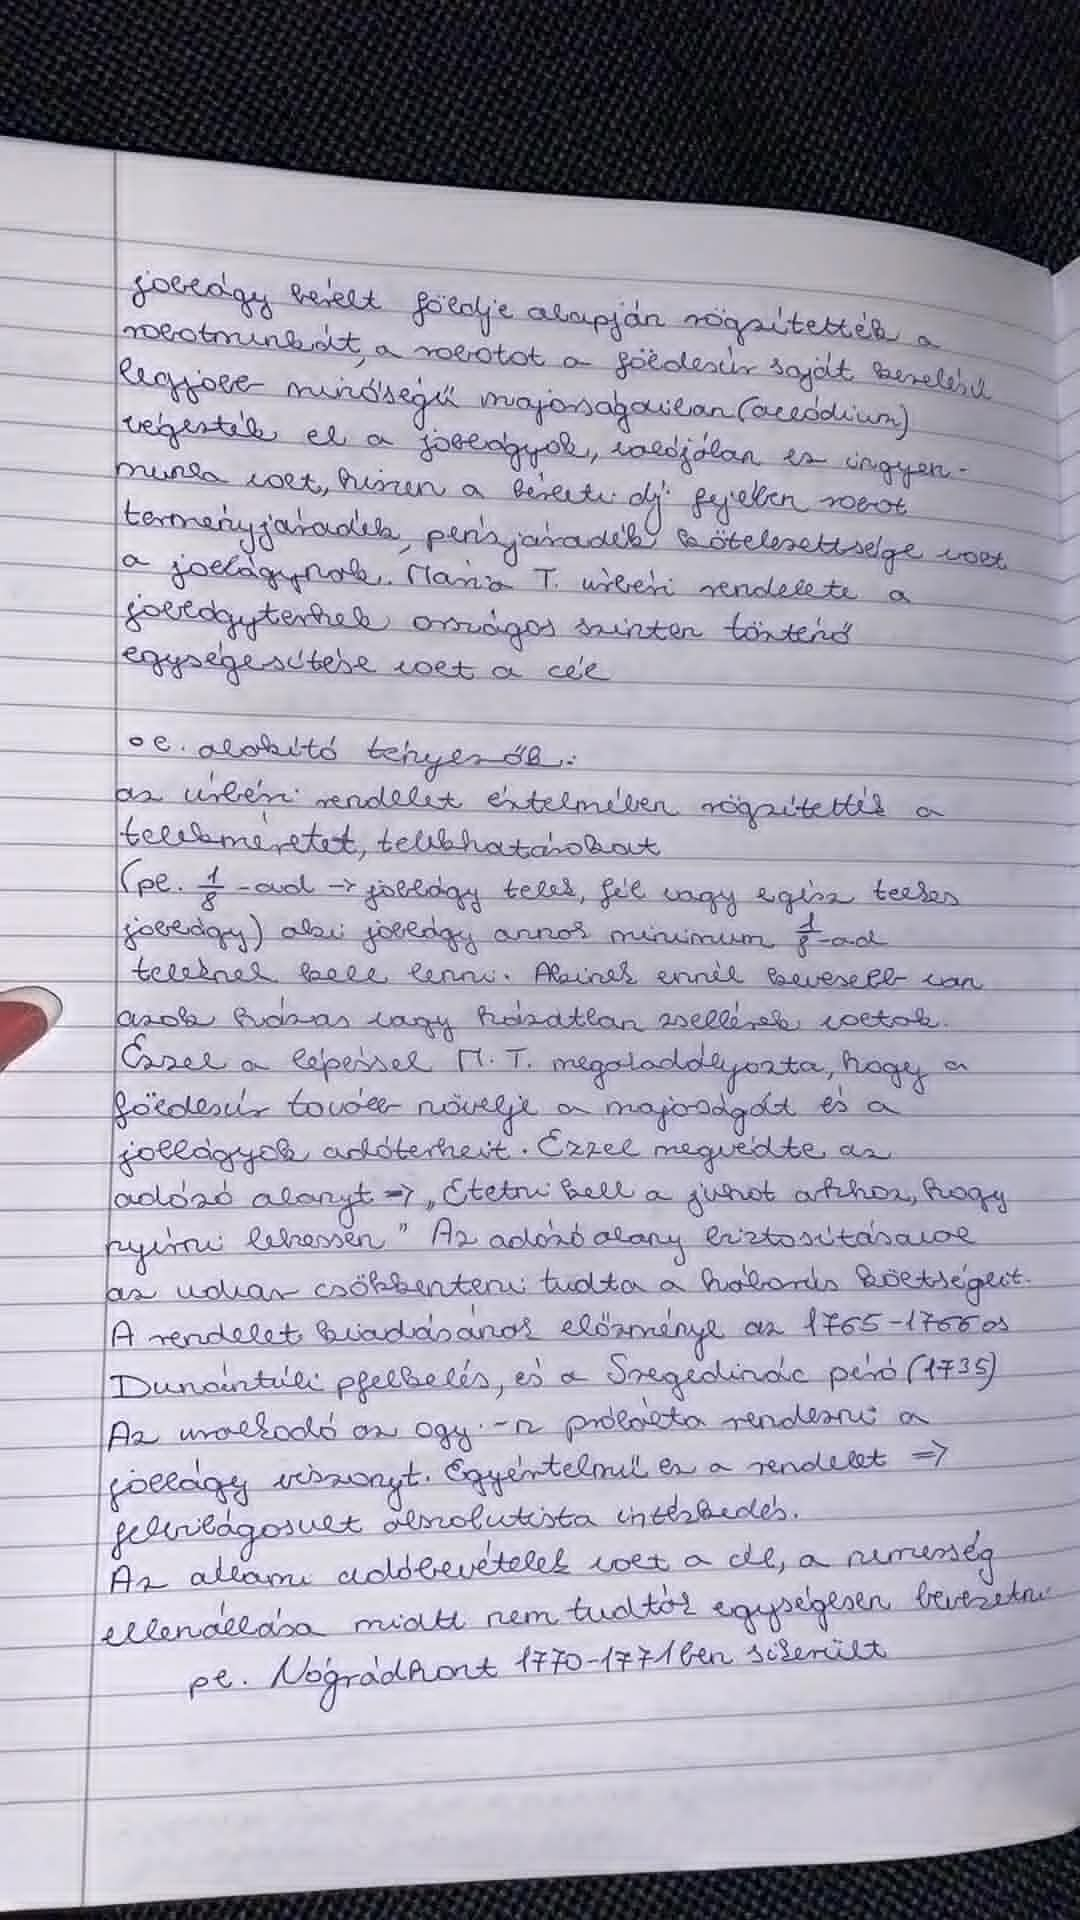 jobbágy bérelt földje alapján rögzítették a
robotmunkát, a robotot a földesúr saját kezelésű
legjobb minőségű majorságaiban (allódium)
végezték el a jobbágyok, valójában ez ingyen-
munka volt, hiszen a bérleti díj fejében robot
terményjáradék, pénzjáradék kötelezettsége volt
a jobbágynak. Mária T. úrbéri rendelete a
jobbágyterhek országos szinten történő
egységesítése volt a cél
alakító tényezők:
az úrbéri rendelet értelmében rögzítették a
telekméretet, telekhatárokat
(pl. 1/8-ad → jobbágy telek, fél vagy egész telkes
jobbágy) aki jobbágy annak minimum 1/8-ad
teleknek kell lenni. Akinek ennél kevesebb van
azok házas vagy házatlan zsellérek voltak.
Ezzel a lépéssel M. T. megakadályozta, hogy a
földesúr tovább növelje a majorságát és a
jobbágyok adóterheit. Ezzel megvédte az
adózó alanyt ⇒ „Etetni kell a juhot ahhoz, hogy
nyírni lehessen" Az adózó alany biztosításával
az udvar csökkenteni tudta a háborús költségeit.
A rendelet kiadásának előzménye az 1765-1766 os
Dunántúli pfelkelés, és a Szegedinác péró (1735)
Az uralkodó az ogy.-n próbálta rendezni a
jobbágy viszonyt. Egyértelmű ez a rendelet ⇒
felvilágosult abszolutista intézkedés.
Az állami adóbevételek volt a cél, a nemesség
ellenállása miatt nem tudták egységesen bevezetni
pl. Nógrádhont 1770-1771ben sikerült